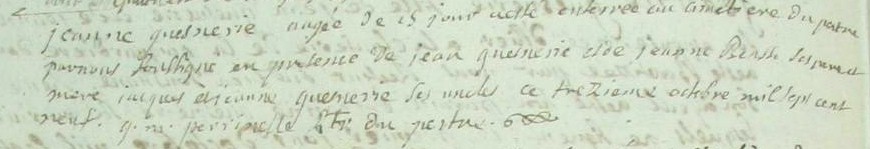 jeanne quesnerie aagée de 15 jour a esté enterrée au cimetiere du pertre
par nous soussigné en presence de jean quesnerie et de jeanne ses pere et
mere jacques et jeanne quesnerie ses oncles ce trezieme octobre mil sept cent
neuf. g. m. perrinelle du pertre.